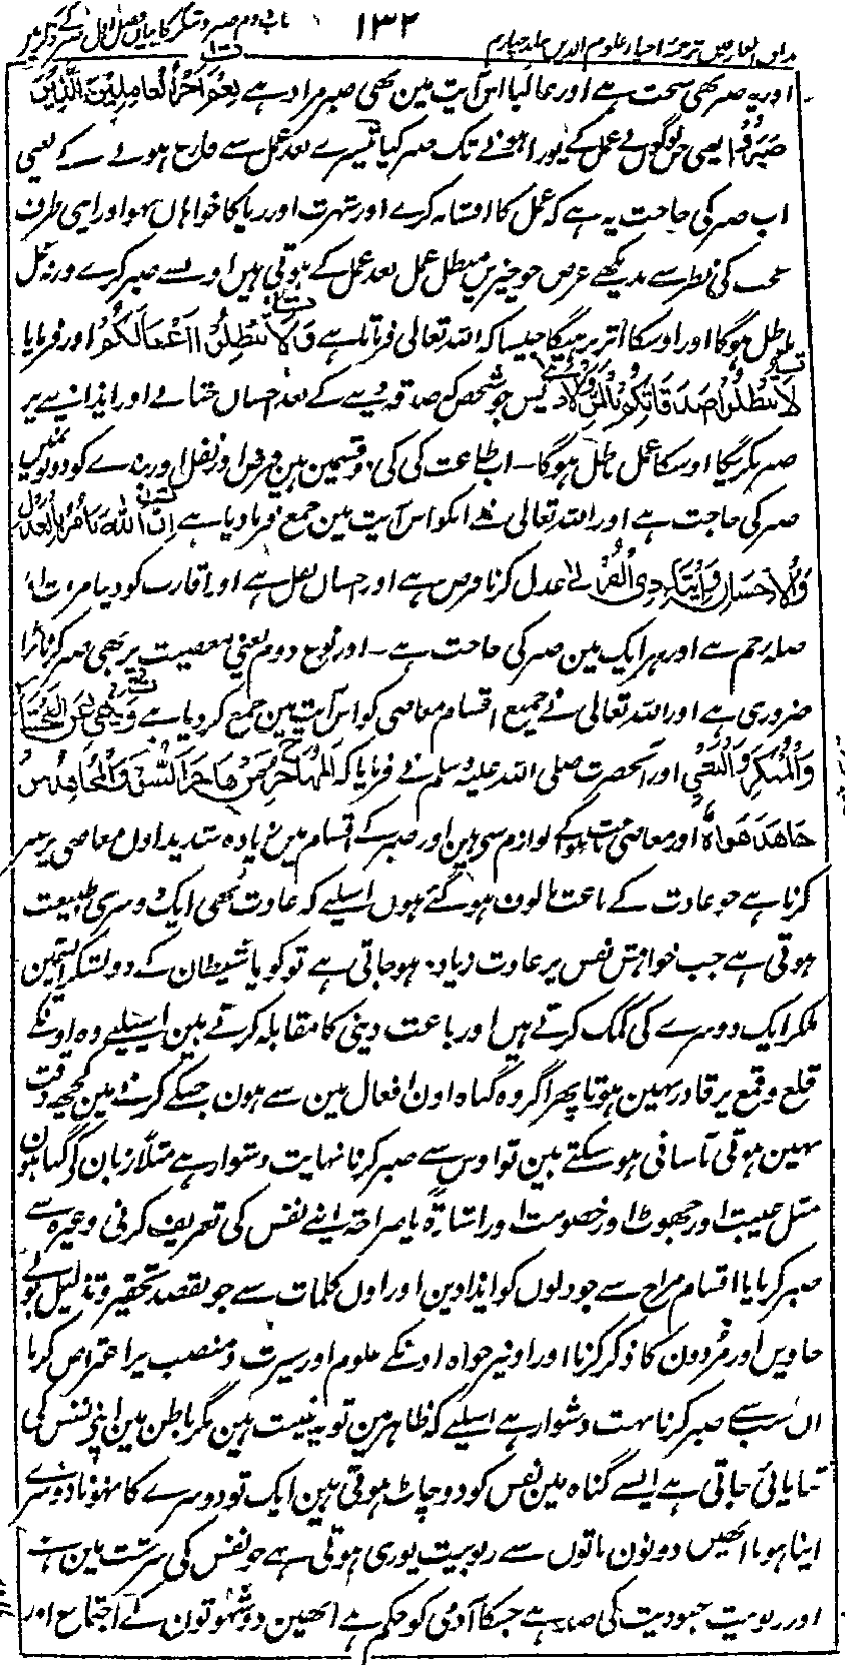 مذاق العارفین ترجمہ احیاء علوم الدین جلد چہارم ۱۳۲ باب دوم صبر و شکر کا بیان فصل اول صبر کے ذکر میں
اور یہ صبر بھی سخت ہے اور غالبا اس آیت مین بھی صبر مراد ہے نِعْمَ اَجْرُ الْعَامِلِيْنَ الَّذِيْنَ
صَبَرُوْا یعنی جن لوگوں نے عمل کے پورا ہونے تک صبر کیا تیسرے بعد عمل سے فارغ ہونے کے یعنی
اب صبر کی حاجت یہ ہے کہ عمل کا افشا نہ کرے اور شہرت اور ریا کا خواہاں نہو اور اپنی طرف
عجب کی نظر سے ندیکھے غرض جو چیزیں مبطل عمل بعد عمل کے ہوتی ہیں اون سے صبر کرے ورنہ عمل
باطل ہوگا اور اوسکا اثر نرہیگا جیسا کہ اللہ تعالی فرماتا ہے وَلَا تُبْطِلُوْا اَعْمَالَكُمْ اور فرمایا
لَا تُبْطِلُوْا صَدَقَاتِكُمْ بِالْمَنِّ وَالْاَذٰى پس جو شخص کہ صدقہ دینے کے بعد احسان جتانے اور ایذا دینے پر
صبر نکریگا اوسکا عمل باطل ہوگا۔ اب طاعت کی دو قسمین ہین فرض اور نفل اور بندے کو دونوں مین
صبر کی حاجت ہے اور اللہ تعالی نے انکو اس آیت مین جمع فرمادیا ہے اِنَّ اللهَ يَأْمُرُ بِالْعَدْلِ
وَالْاِحْسَانِ وَاِيْتَاءِ ذِى الْقُرْبٰى عدل کرنا فرض ہے اور احسان نفل ہے اور اقارب کو دینا مروت اور
صلہ رحم ہے اور ہر ایک مین صبر کی حاجت ہے۔ اور نوع دوم یعنی معصیت پر بھی صبر کرنا بڑا
ضروری ہے اور اللہ تعالی نے جمیع اقسام معاصی کو اس آیت مین جمع کر دیا ہے وَيَنْهٰى عَنِ الْفَحْشَاءِ
وَالْمُنْكَرِ وَالْبَغْيِ اور آنحضرت صلی اللہ علیہ وسلم نے فرمایا کہ اَلْمُهَاجِرُ مَنْ هَاجَرَ السُّوْءَ وَالْمُجَاهِدُ مَنْ
جَاهَدَ هَوَاهُ اور معاصی باعث ہوا کے لوازم سی ہین اور صبر کے اقسام مین زیادہ شدید اون معاصی پر صبر
کرنا ہے جو عادت کے باعث مالوف ہو گئے ہوں اسلیے کہ عادت بھی ایک دوسری طبیعت
ہوتی ہے جب خواہش نفس پر عادت زیادہ ہوجاتی ہے تو گویا شیطان کے دو لشکر آپسمین
ملکر ایک دوسرے کی کمک کرتے ہیں اور باعث دینی کا مقابلہ کرتے ہین اسلیے وہ اونکے
قلع و قمع پر قادر نہین ہوتا پھر اگر وہ گناہ اون افعال مین سے ہون جسکے کرنے مین کچھ دقت
نہین ہوتی بآسانی ہو سکتے ہین تو اوس سے صبر کرنا نہایت دشوار ہے مثلاً زبان کے گناہون
مثل غیبت اور جھوٹ اور خصومت اور اشارۃً یا صراحۃً اپنے نفس کی تعریف کرنی وغیرہ سے
صبر کرنا یا اقسام مزاح سے جو دلوں کو ایذا دین اور اون کلمات سے جو بقصد تحقیر و تذلیل بولے
جاویں اور مُردون کا ذکر کرنا اور اونپر خواہ اونکے علوم اور سیرت و منصب پر اعتراض کرنا
ان سب سے صبر کرنا بہت دشوار ہے اسلیے کہ ظاہر مین تو یہ غیبت ہین مگر باطن مین اپنے نفس کی
ثنا پائی جاتی ہے ایسے گناہ مین نفس کو دو چاٹ ہوتی ہین ایک تو دوسرے کا نہونا دوسرے
اپنا ہونا انھیں دونون باتوں سے ربوبیت پوری ہوتی ہے جو نفس کی سرشت مین ہے
اور ربوبیت عبودیت کی ضد ہے جسکا آدمی کو حکم ہے انھین دو شہوتون کے اجتماع اور